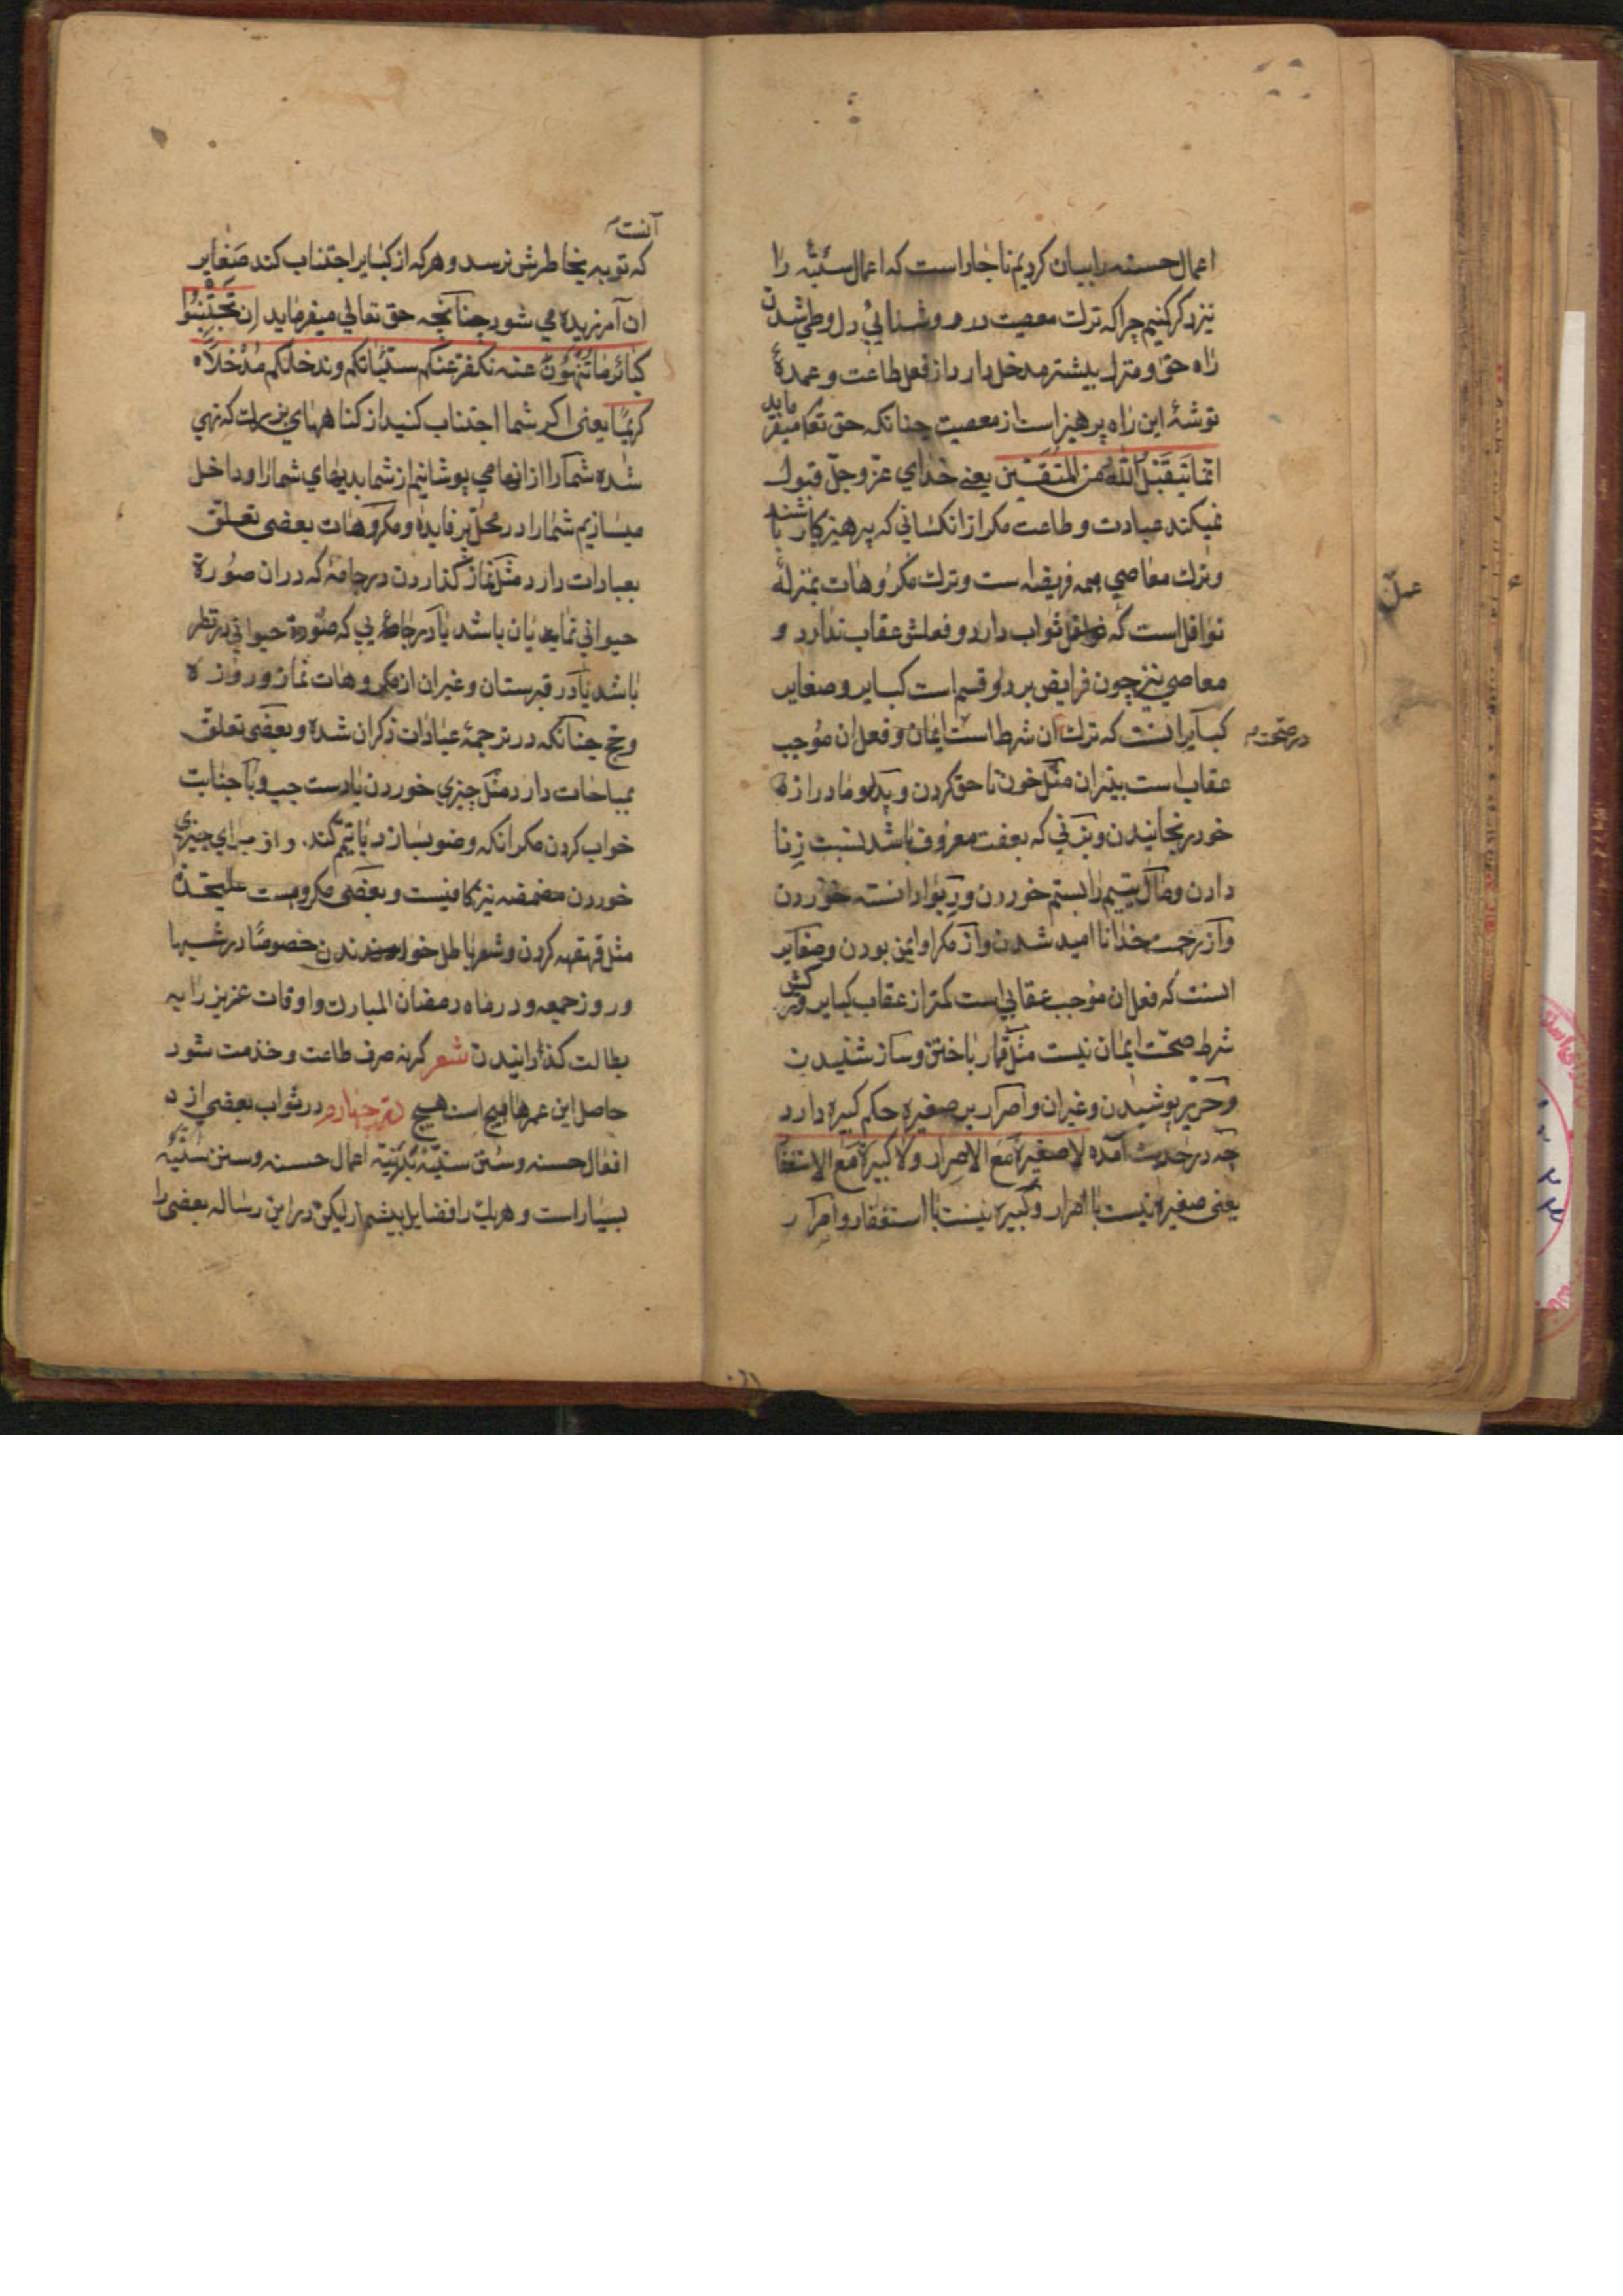 اعمال حسنه را بیان کردیم ناچار است که اعمال سیئه را
نیز ذکر کنیم چرا که ترک معصیت در روشنایی دل و طی شدن
راه حق و منزل بیشتر مدخل دارد از فعل طاعت و عمدهٔ
توشهٔ این راه پرهیز است از معصیت چنانکه حق تعا میفرماید
انما یتقبل الله من المتقین یعنی خدای عز و جل قبول
نمیکند عبادت و طاعت مکر از انکسانی که پرهیزکار باشند
و ترک معاصی همه فریضه ست و ترک مکروهات بمنزلهٔ
نوافل است که ثواب دارد و فعلش عقاب ندارد و
معاصی نیز چون فرایض بر دو قسم است کبایر و صغایر
کبایر انست که ترک ان شرط است ایمان و فعل ان موجب
در صحت
عقاب است بیتر ان مثل خون ناحق کردن و پدر و مادر ازه
خود رنجانیدن و بزنی که بعفت معروف باشد نسبت زنا
دادن و مال یتیم را بستم خوردن و ربوا دانسته خوردن
و از رحمت خدا نا امید شدن و از مکر او ایمن بودن و صغایر
انست که فعل ان موجب عقابی است کمتر از عقاب کبایر و ترکش
شرط صحت ایمان نیست مثل قمار باختن و ساز شنیدن
و حریر پوشیدن و غیر ان و اصرار بر صغیره حکم کبیره دارد
چه در حدیث آمده لا صغیرة مع الاصرار ولا کبیرة مع الاستغفا
یعنی صغیره نیست با اصرار و کبیره نیست با استغفار و اصرار
عمل
آنست
که توبه بخاطرش نرسد و هرکه از کبایر اجتناب کند صغایر
ان آمرزیده می شود چنانچه حق تعالی میفرماید ان تجتنبوا
کبائر ما تنهون عنه نکفر عنکم سیئاتکم و ندخلکم مدخلا
کریما یعنی اکر شما اجتناب کنید از کناههای بزرک که نهی
شده شما را از انها می پوشانیم از شما بدیهای شما را و داخل
میسازیم شما را در محل پر فایده و مکروهات بعضی تعلق
بعبادات دارد مثل نماز کذاردن در جامهٔ که در ان صورة
حیوانی نمایان باشد یا در جائی که صورة حیوانی در نظر
باشد یا در قبرستان و غیر ان از مکروهات نماز و روزه
و حج چنانکه در ترجمهٔ عبادات ذکر ان شده و بعضی تعلق
بمباحات دارد مثل چیزی خوردن بادست چپ و با جنابت
خواب کردن مکر انکه وضو بسازد یا تیمم کند و از برای چیزی
خوردن مضمضه نیز کافیست و بعضی مکروهست
مثل قهقهه کردن و شعر باطل خواندن خصوصا در شبها
و روز جمعه و در ماه رمضان المبارک و اوقات عزیز را به
بطالت کذرانیدن شعر کر نه صرف طاعت و خدمت شود
حاصل این عمرها هیچ است هیچ در چهارم در ثواب بعضی از
افعال حسنه و سنن سنیه اعمال حسنه و سنن سنیه
بسیار است و هر یک را فضایل بیشمار لیکن در این رساله بعضی را